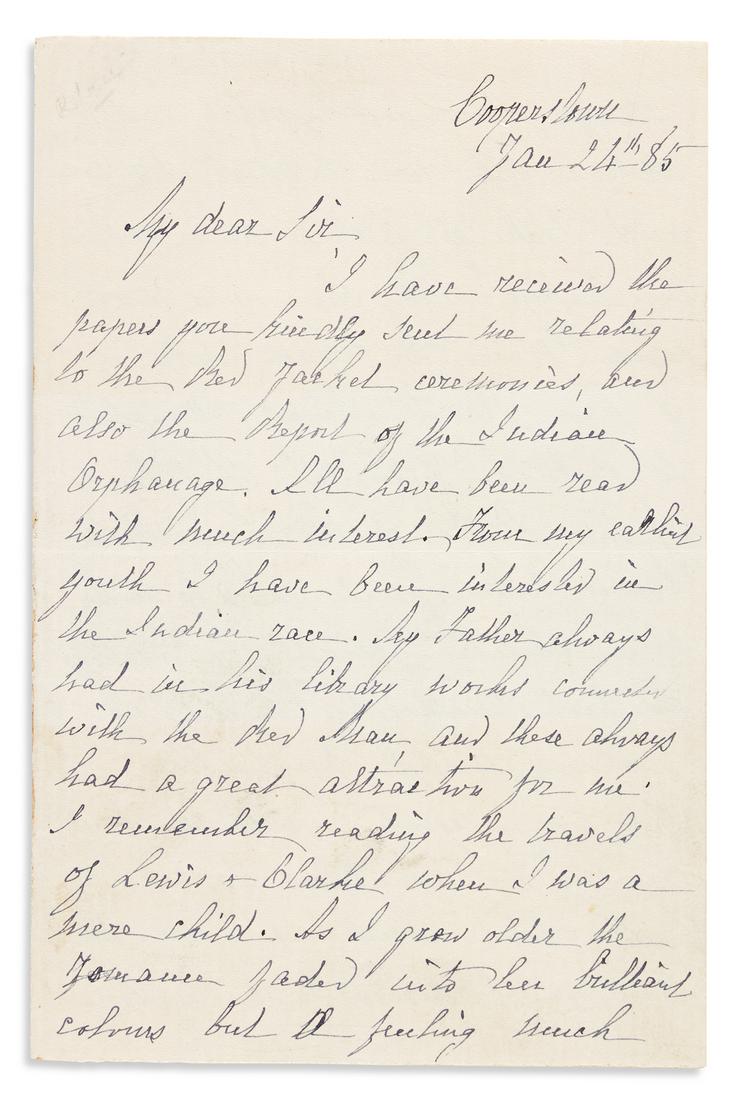 Cooperstown
Jan 24th 85
My dear Sir,
I have received the
papers you kindly sent me relating
to the Red Jacket ceremonies, and
also the Report of the Indian
Orphanage. All have been read
with much interest. From my earliest
youth I have been interested in
the Indian race. My Father always
had in his library works connected
with the Red Man, and these always
had a great attraction for me.
I remember reading the travels
of Lewis & Clarke when I was a
mere child. As I grow older the
romance faded into less brilliant
colours but a feeling much